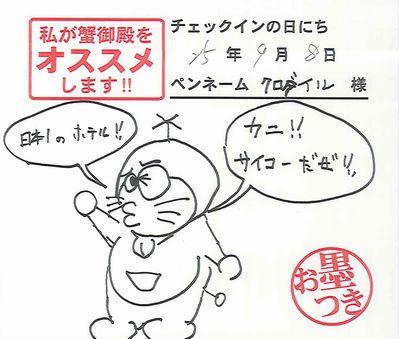 私が蟹御殿を
オススメ
します!!
チェックインの日にち
25年9月8日
ペンネーム クロダイル 様
日本1の ホテル!!
カニ!!
サイコーだぜ!!
お墨つき